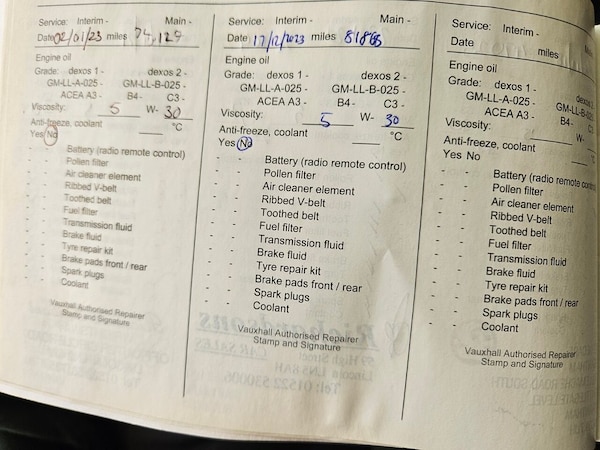 Service: Interim - Main -
Date 02/01/23 miles 74,129
Engine oil
Grade: dexos 1 - dexos 2 -
GM-LL-A-025 - GM-LL-B-025 -
ACEA A3 - B4 - C3 -
Viscosity: 5 W- 30
Anti-freeze, coolant °C
Yes No
- - Battery (radio remote control)
- - Pollen filter
- - Air cleaner element
- - Ribbed V-belt
- - Toothed belt
- - Fuel filter
- - Transmission fluid
- - Brake fluid
- - Tyre repair kit
- - Brake pads front / rear
- - Spark plugs
- - Coolant
Vauxhall Authorised Repairer
Stamp and Signature
Service: Interim - Main -
Date 17/12/2023 miles
Engine oil
Grade: dexos 1 - dexos 2 -
GM-LL-A-025 - GM-LL-B-025 -
ACEA A3 - B4 - C3 -
Viscosity: 5 W- 30
Anti-freeze, coolant °C
Yes No
- - Battery (radio remote control)
- - Pollen filter
- - Air cleaner element
- - Ribbed V-belt
- - Toothed belt
- - Fuel filter
- - Transmission fluid
- - Brake fluid
- - Tyre repair kit
- - Brake pads front / rear
- - Spark plugs
- - Coolant
Vauxhall Authorised Repairer
Stamp and Signature
Service: Interim -
Date miles
Engine oil
Grade: dexos 1 -
GM-LL-A-025 -
ACEA A3 - B4 -
Viscosity:
Anti-freeze, coolant
Yes No
- - Battery (radio remote
- - Pollen filter
- - Air cleaner element
- - Ribbed V-belt
- - Toothed belt
- - Fuel filter
- - Transmission fluid
- - Brake fluid
- - Tyre repair kit
- - Brake pads front / rear
- - Spark plugs
- - Coolant
Vauxhall Authorised Repairer
Stamp and Signature